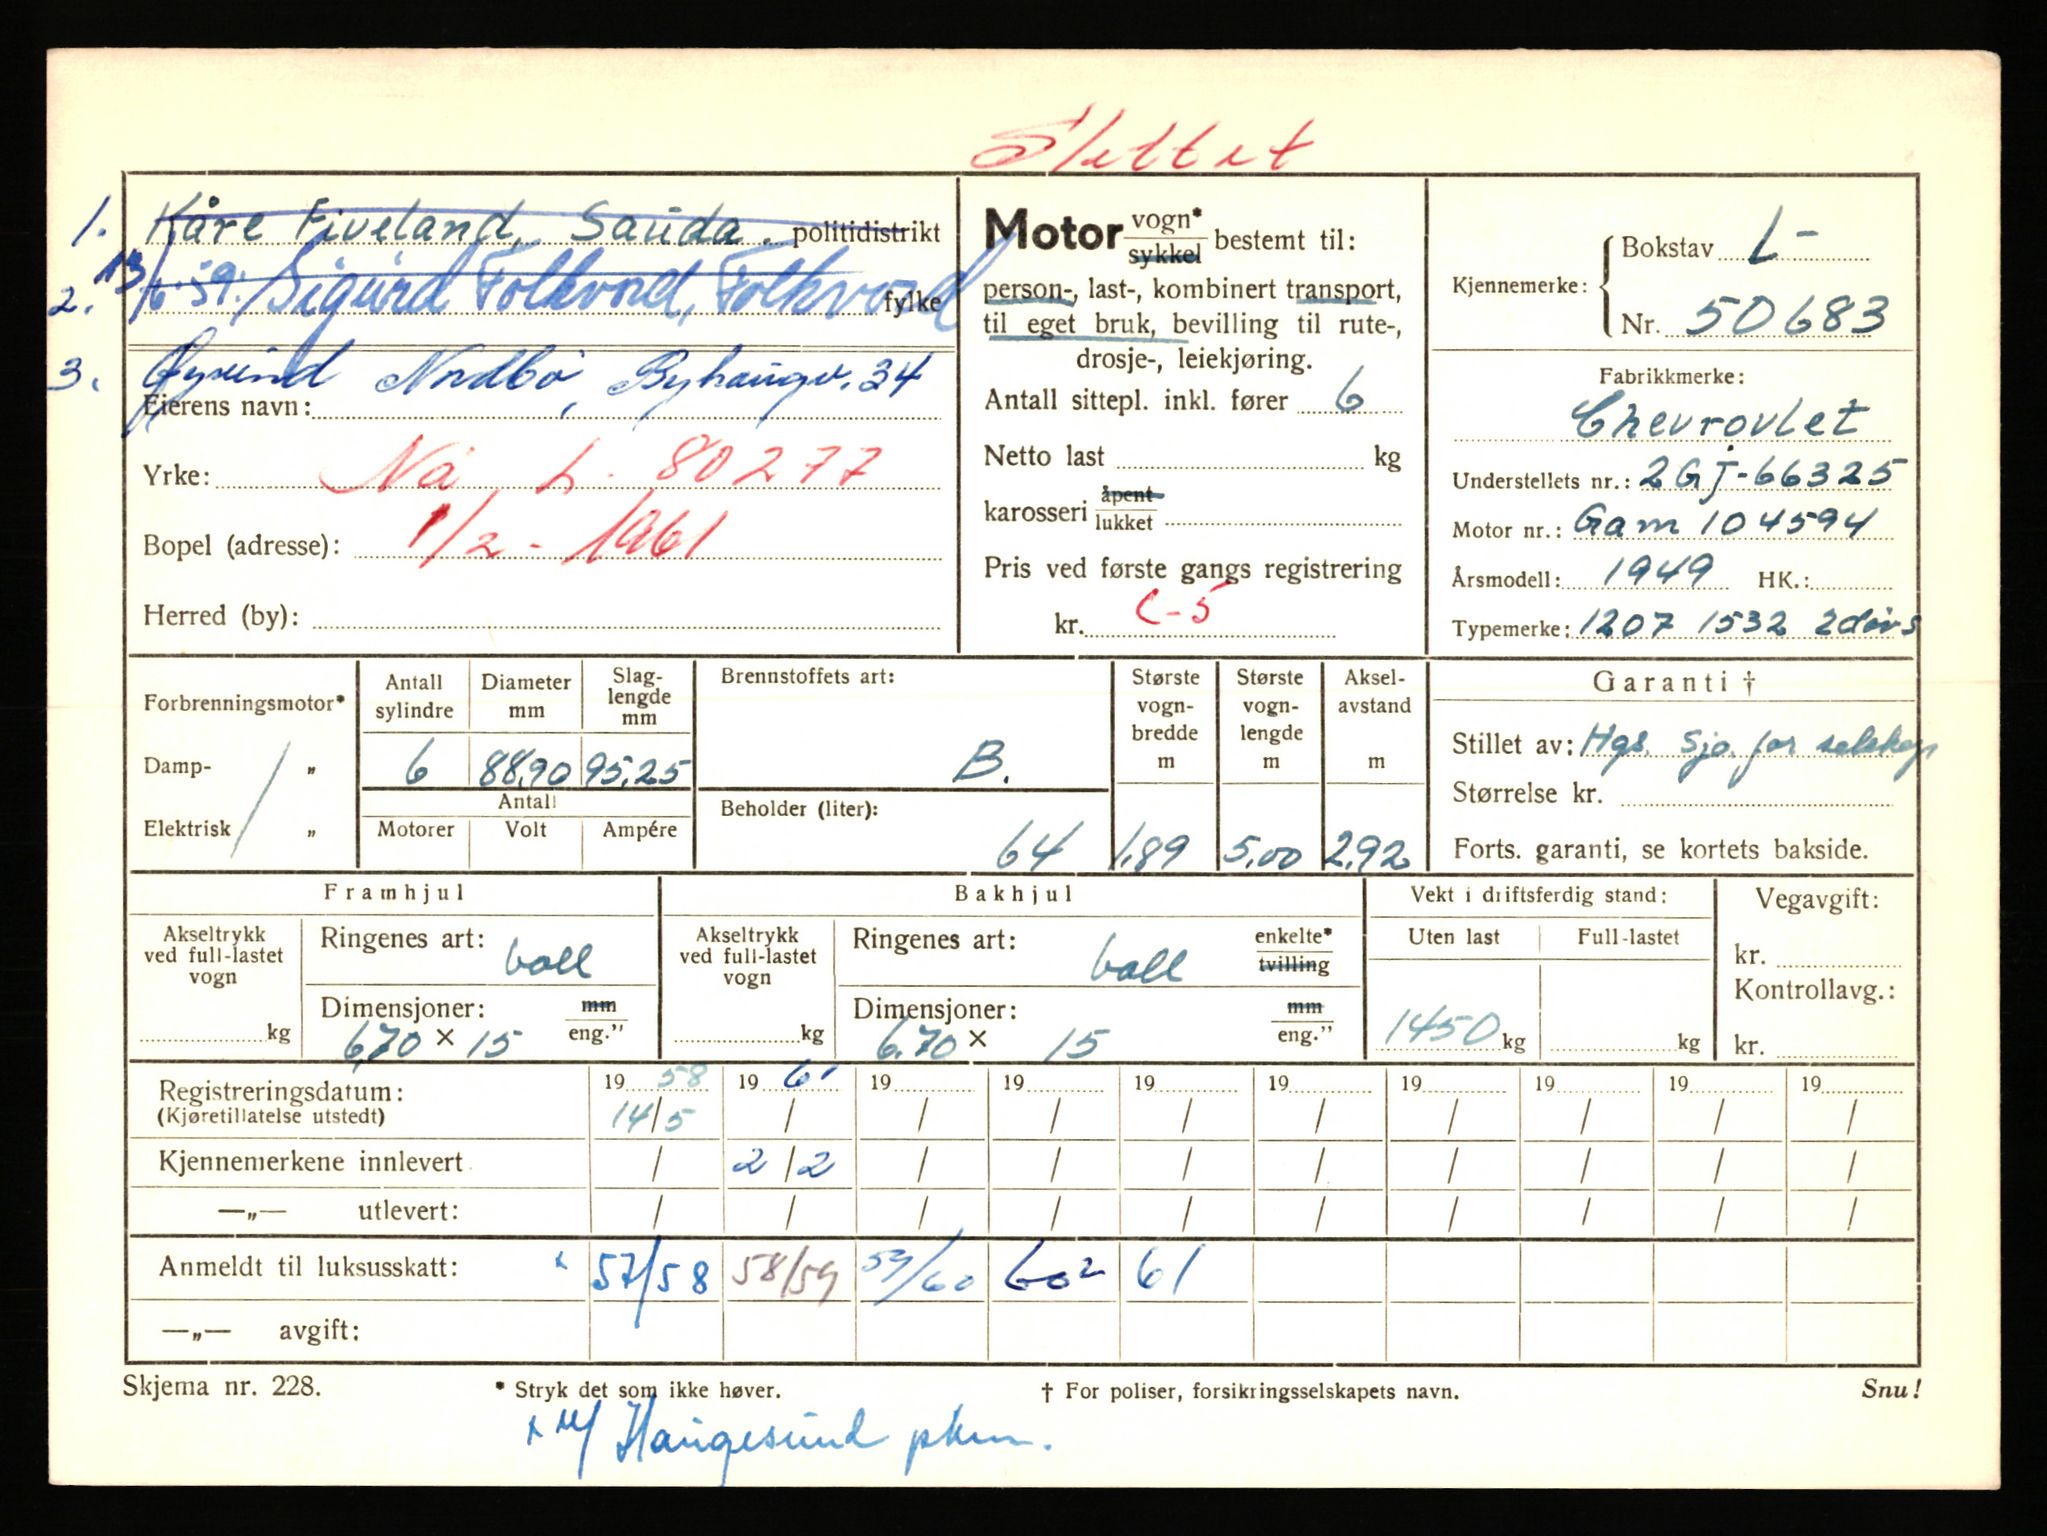 Slettet
1. Kåre Fiveland, Sauda. politidistrikt
2. 13/6.59. Sigurd Folkvord, Folkvord fylke
3. Øyvind Nordbö, Byhaugv. 34
Eierens navn:
Yrke: Nå L. 80277
Bopel (adresse): 1/2 - 1961
Herred (by):
Motor vogn* sykkel bestemt til:
person-, last-, kombinert transport,
til eget bruk, bevilling til rute-,
drosje-, leiekjøring.
Antall sittepl. inkl. fører 6
Netto last kg
karosseri åpent lukket
Pris ved første gangs registrering
kr. C-5
Kjennemerke: Bokstav L-
Nr. 50683
Fabrikkmerke:
Chevrovlet
Understellets nr.: 2GJ-66325
Motor nr.: Gam 104594
Årsmodell: 1949 HK.:
Typemerke: 1207 1532 2dørs
Forbrenningsmotor*
Damp- „
Elektrisk „
Antall sylindre 6
Diameter mm 88,90
Slaglengde mm 95,25
Antall
Motorer Volt Ampére
Brennstoffets art: B.
Beholder (liter): 64
Største vognbredde m 1,89
Største vognlengde m 5,00
Akselavstand m 2,92
Garanti †
Stillet av: Hgs. Sjø. for selskap
Størrelse kr.
Forts. garanti, se kortets bakside.
Framhjul
Akseltrykk ved full-lastet vogn kg
Ringenes art: ball
Dimensjoner: mm eng."
6,70 × 15
Bakhjul
Akseltrykk ved full-lastet vogn kg
Ringenes art: ball enkelte* tvilling
Dimensjoner: mm eng."
6,70 × 15
Vekt i driftsferdig stand:
Uten last Full-lastet
1450 kg kg
Vegavgift:
kr.
Kontrollavg.:
kr.
Registreringsdatum: 19 58 19 61 19 19 19 19 19 19 19 19
(Kjøretillatelse utstedt) 14/5 / / / / / / / / /
Kjennemerkene innlevert / 2/2 / / / / / / / /
—„— utlevert: / / / / / / / / / /
Anmeldt til luksusskatt: x 57/58 58/59 59/60 60² 61
—„— avgift:
Skjema nr. 228. * Stryk det som ikke høver. † For poliser, forsikringsselskapets navn. Snu!
x Haugesund pkm.